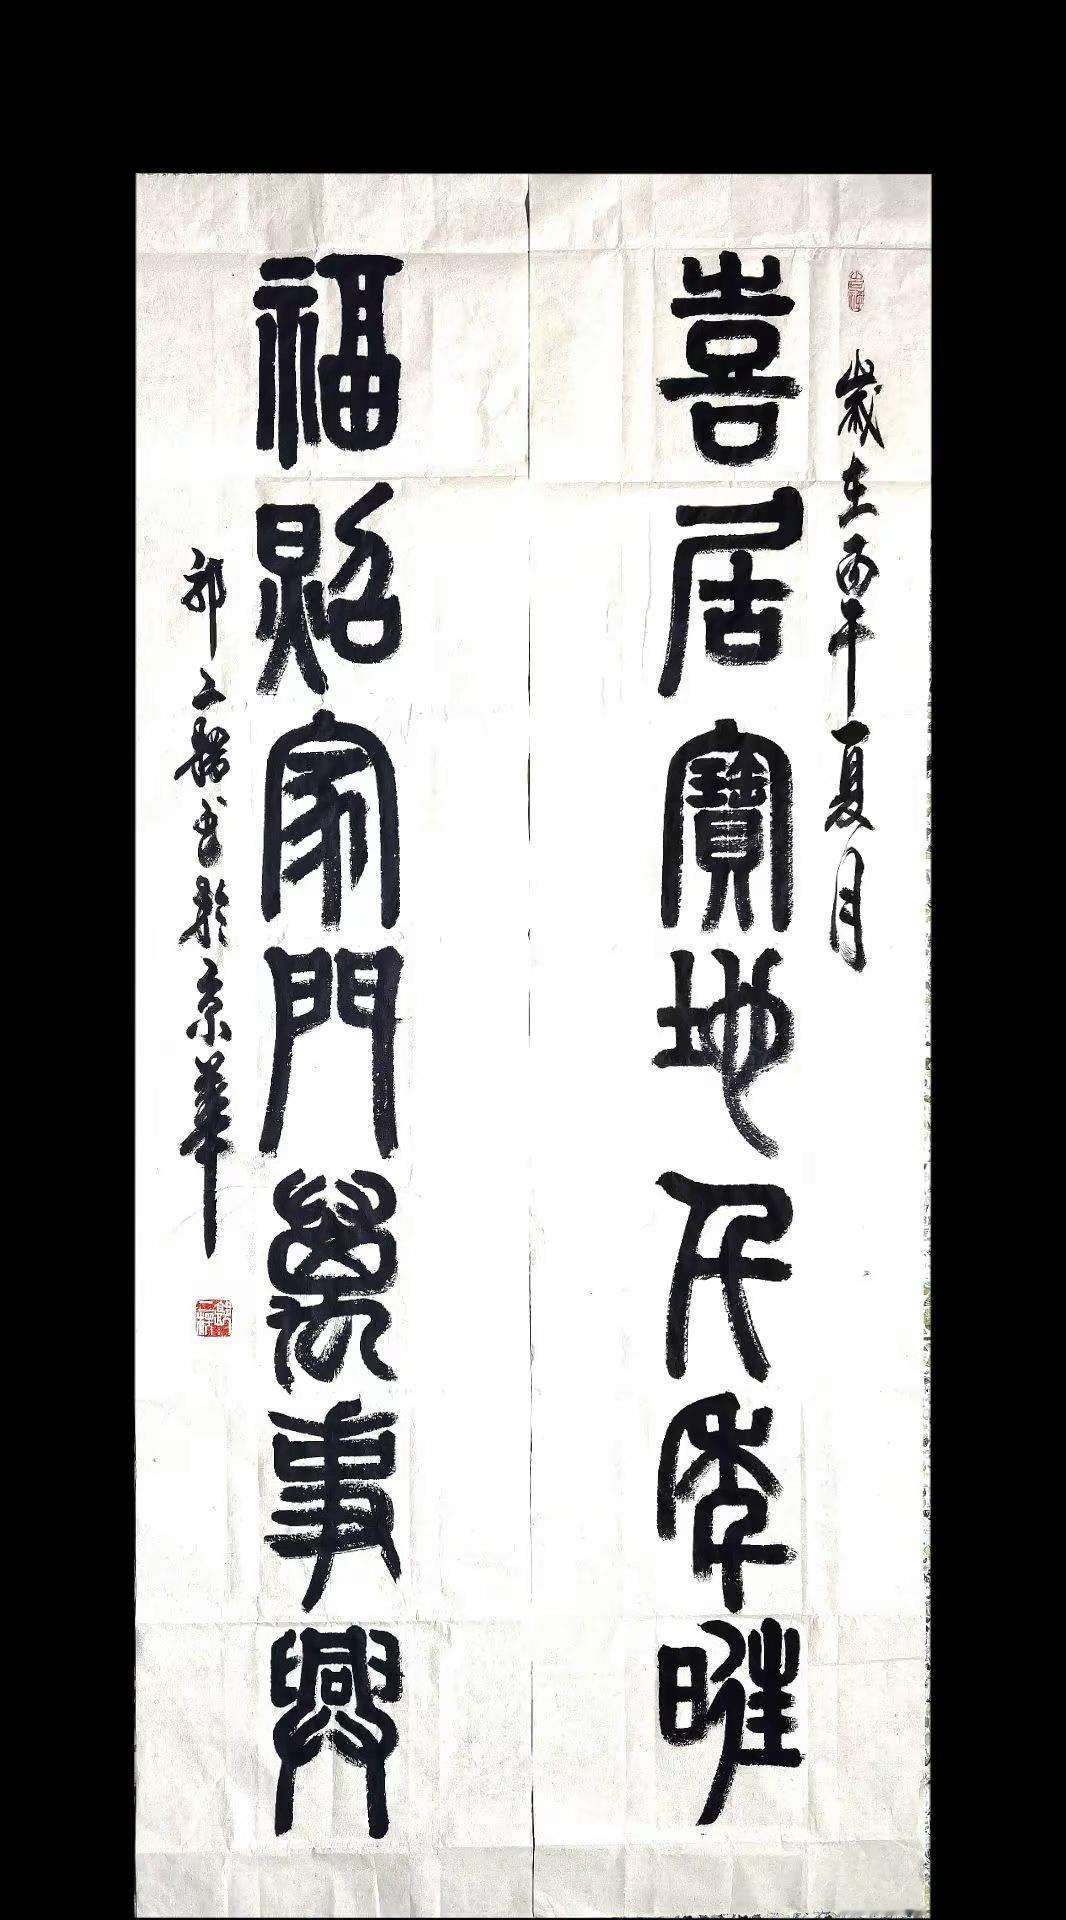 歲在丙午夏月
喜居寶地千年旺
福照家門萬事興
書於京華